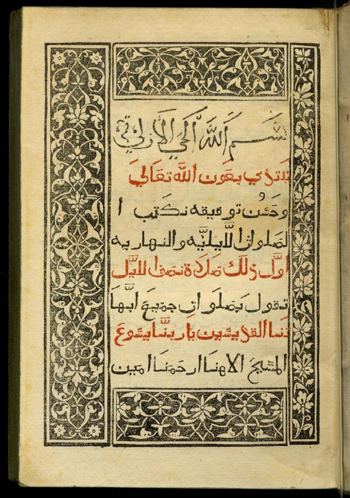 بسم الله الحي الازلي
نبتدي بعون الله تعالي
وحسن توفيقه نكتب ا
لصلواة الليليه والنهاريه
اول ذلك صلاة نصف الليل
تقول بصلواة جميع ابها
تنا القديسين ياربنا يسوع
المسيح الاهنا ارحمنا امين